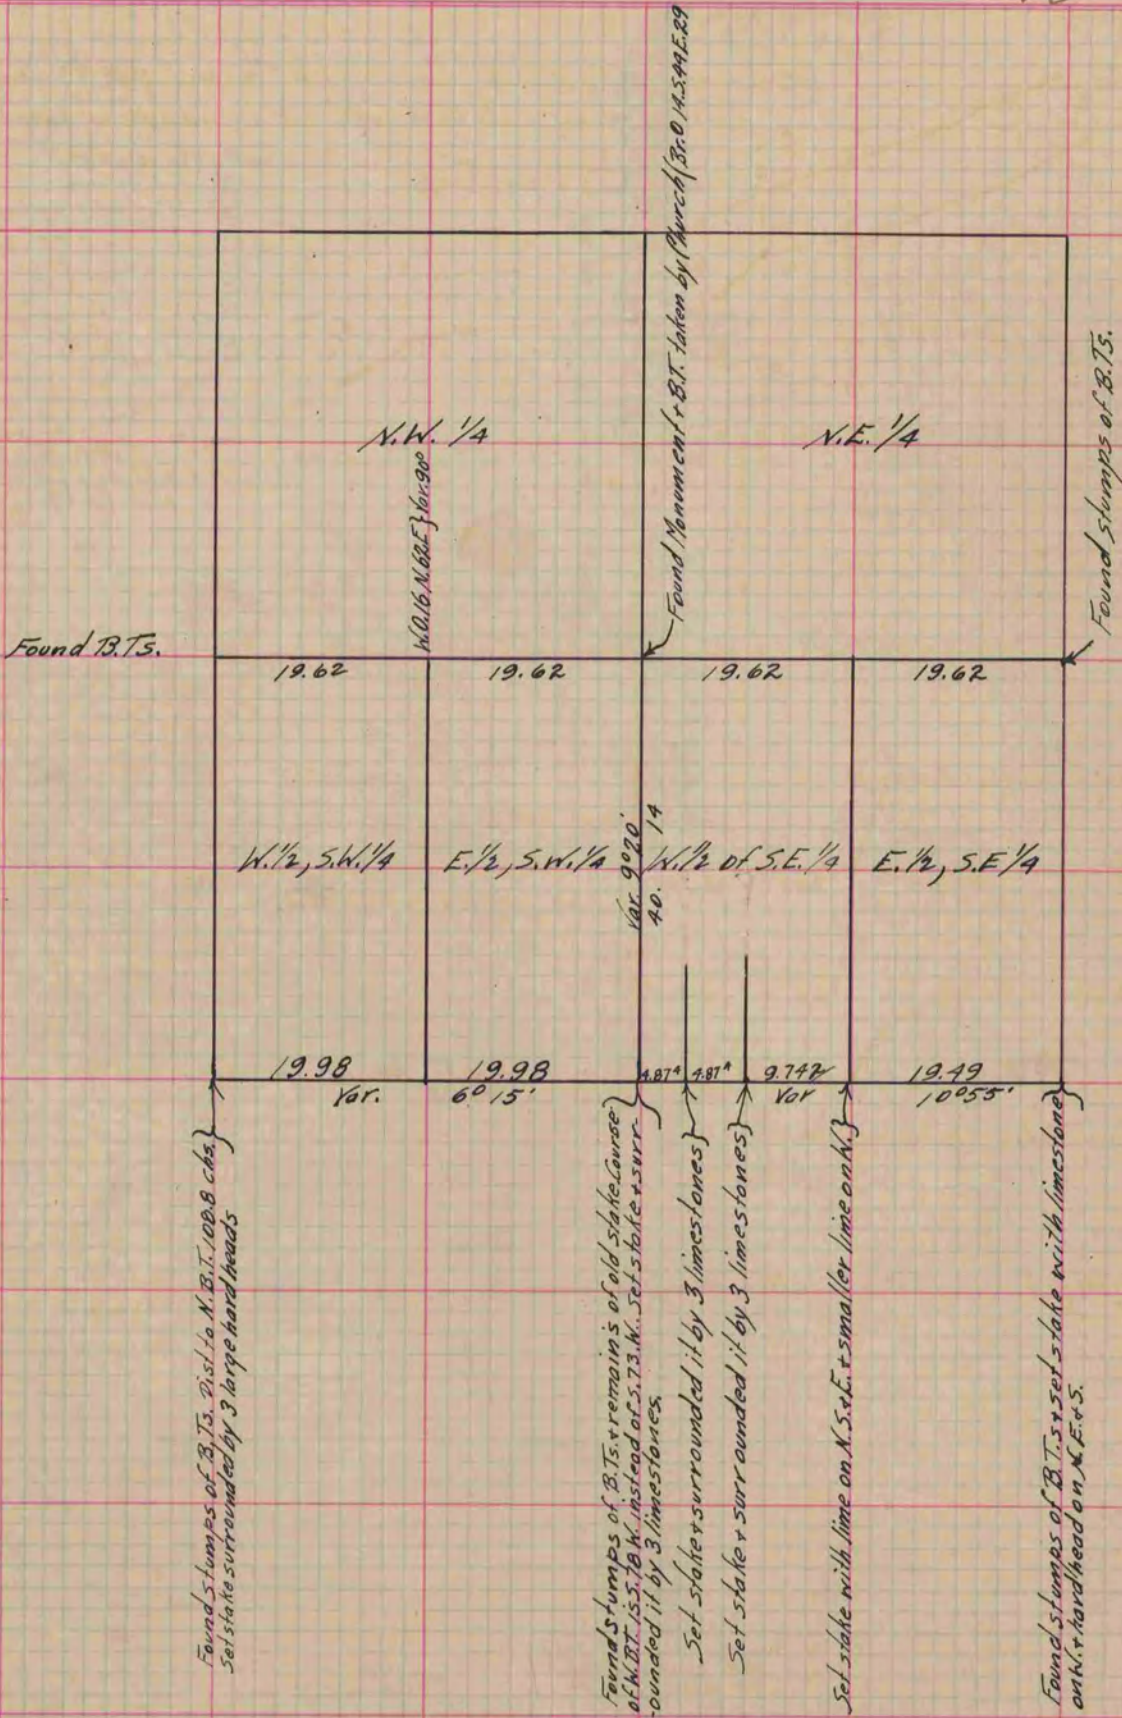 Found Monument + B.T. taken by Church (Br. O 14. S.44E.29
N.W. 1/4
N.E. 1/4
W.O.16 N.62E.} Var. 90°
Found stumps of B.Ts.
Found B.Ts.
19.62
19.62
19.62
19.62
W.1/2, S.W.1/4
E.1/2, S.W.1/4
Var. 9°20'
40. 14
W.1/2 of S.E.1/4
E.1/2, S.E 1/4
19.98
19.98
4.87⁴
4.87⁴
9.742
19.49
Var.
6° 15'
Var
10°55'
Found stumps of B.Ts. Dist to N.B.T. 100.8 chs.}
Set stake surrounded by 3 large hard heads
Found stumps of B.Ts. + remains of old stake. Course}
of W.B.T. is S.78 W. instead of S.73.W. Set stake + surr-
-ounded it by 3 limestones.
Set stake + surrounded it by 3 limestones}
Set stake + surrounded it by 3 limestones}
Set stake with lime on N.S.+E. + smaller lime on W.}
Found stumps of B.T.s + set stake with limestone}
on W. + hard head on N.E.+S.